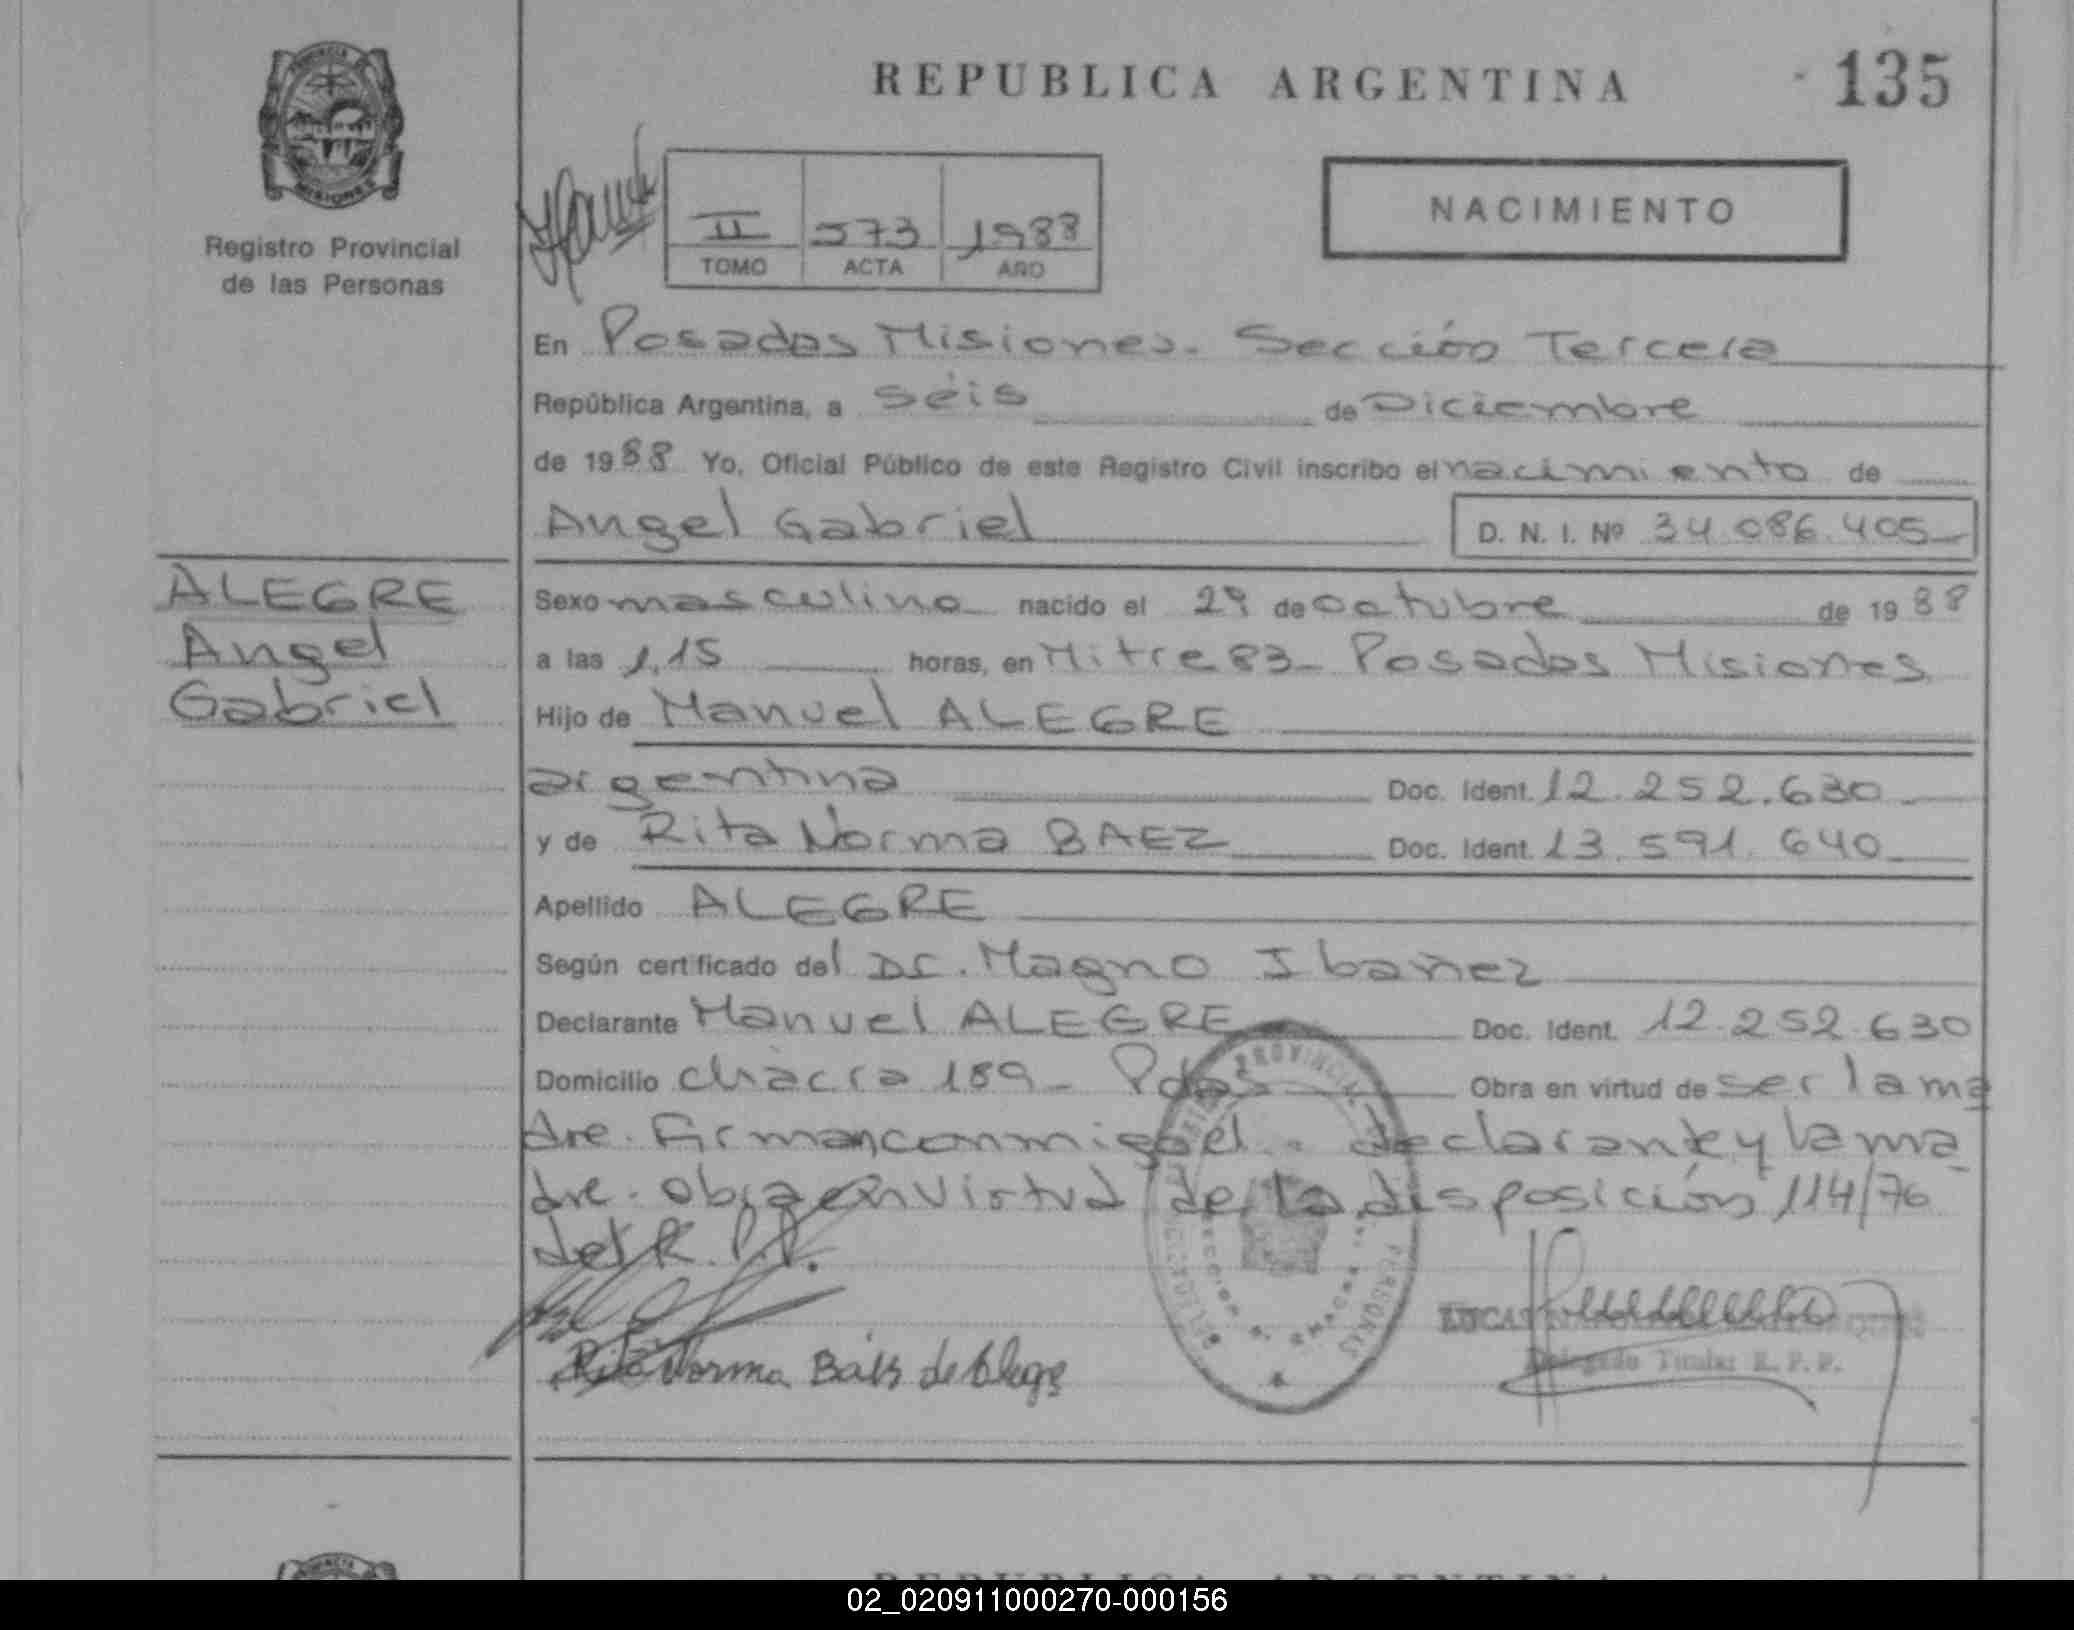 REPUBLICA ARGENTINA
135
PROVINCIA
MISIONES
Registro Provincial
de las Personas
II 573 1988
TOMO ACTA AÑO
NACIMIENTO
En Posadas Misiones. Sección Tercera
República Argentina, a seis de Diciembre
de 1988 Yo, Oficial Público de este Registro Civil inscribo el nacimiento de
Angel Gabriel D. N. I. Nº 34.086.405
ALEGRE
Angel
Gabriel
Sexo masculino nacido el 29 de octubre de 1988
a las 1,15 horas, en Mitre 83 Posadas Misiones
Hijo de Manuel ALEGRE
argentina Doc. Ident. 12.252.630
y de Rita Norma BAEZ Doc. Ident. 13.591.640
Apellido ALEGRE
Según certificado del Dr. Magno Ibañez
Declarante Manuel ALEGRE Doc. Ident. 12.252.630
Domicilio chacra 189 - Pdas Obra en virtud de ser la ma
dre. Firman conmigo el declarante y la ma
dre. obra en virtud de la disposición 114/76
del R. P. P.
Rita Norma Báez de Alegre
Delegado Titular R. P. P.
REPUBLICA ARGENTINA
02_020911000270-000156